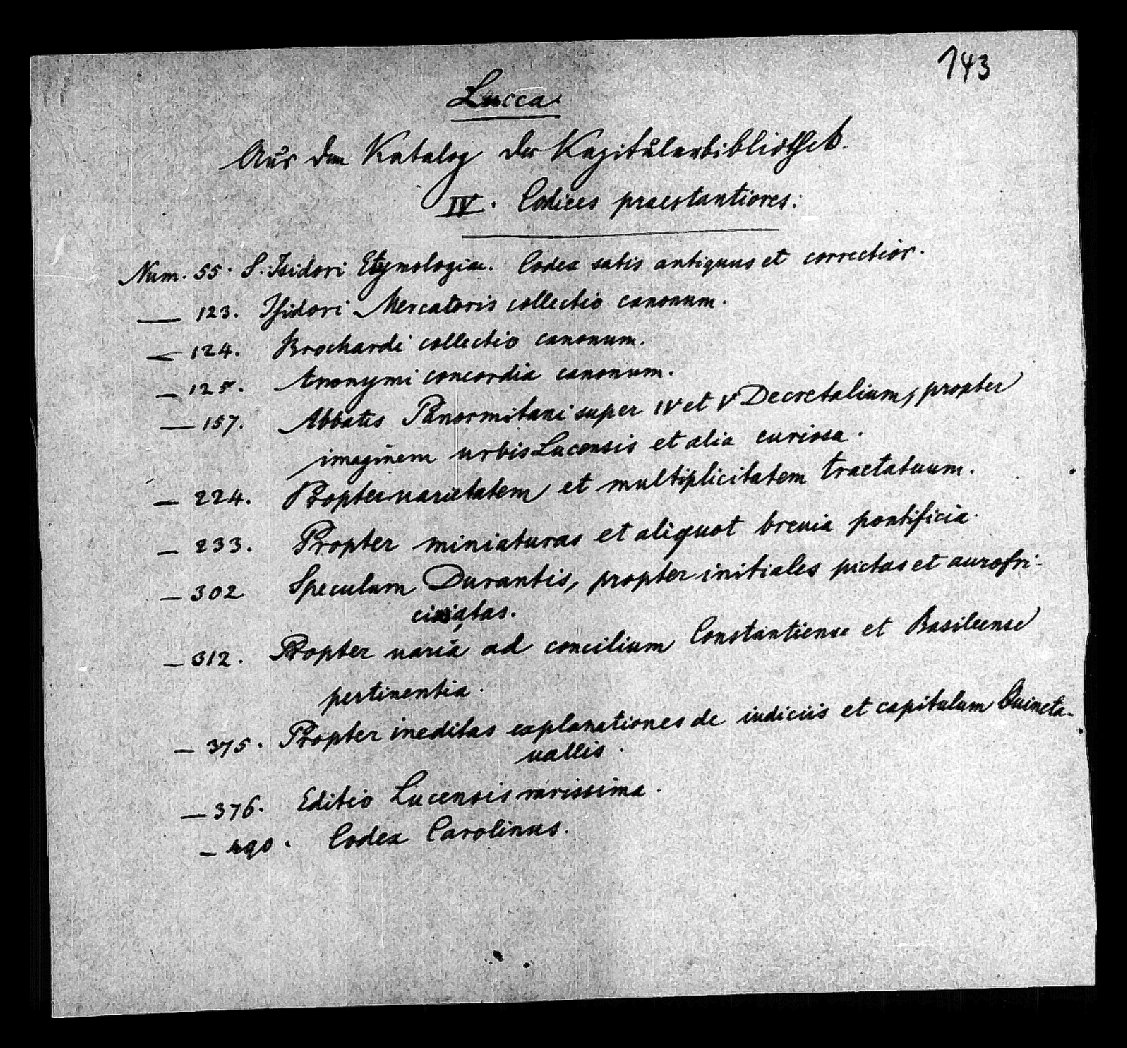 143
Lucca.
Aus dem Katalog der Kapitularbibliothek.
IV. Codices praestantiores:
Num. 55. S. Isidori Etymologiae. Codex satis antiquus et correctior.
— 123. Isidori Mercatoris collectio canonum.
— 124. Brochardi collectio canonum.
— 125. Anonymi concordia canonum.
— 157. Abbatis Panormitani super IV et V Decretalium, propter
imaginem urbis Lucensis et alia curiosa.
— 224. Propter varietatem et multiplicitatem tractatuum.
— 233. Propter miniaturas et aliquot brevia pontificia.
— 302 Speculum Durantis, propter initiales pictas et aurofri-
ciatas.
— 312. Propter varia ad concilium Constantiense et Basileense
pertinentia.
— 375. Propter ineditas explanationes de iudiciis et capitulum Quincta-
vallis.
— 376. Editio Lucensis rarissima.
— 490. Codex Carolinus.